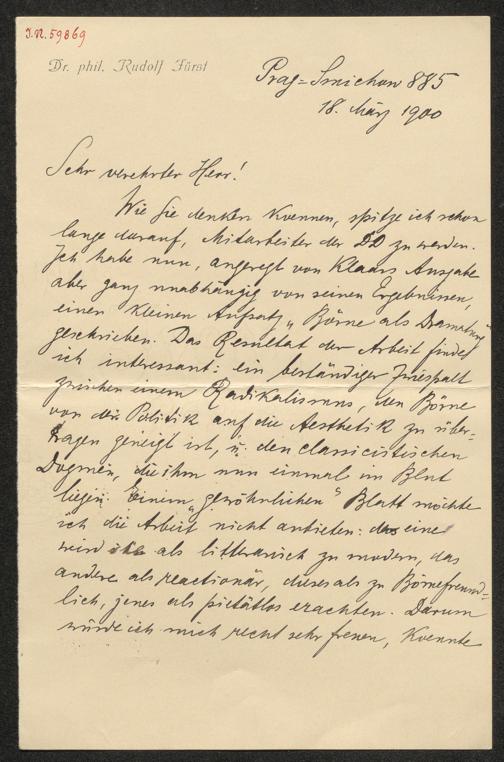 J.N. 59869
Dr. phil. Rudolf Fürst
Prag-Smichow 885
18. März 1900
Sehr verehrter Herr!
Wie Sie denken koennen, spitze ich schon
lange darauf, Mitarbeiter der DD zu werden.
Ich habe nun, angeregt von Klaars Ausgabe
aber ganz unabhängig von seinen Ergebnissen,
einen kleinen Aufsatz „Börne als Dramaturg“
geschrieben. Das Resultat der Arbeit finde
ich interessant: ein beständiger Zwiespalt
zwischen einem Radikalismus, den Börne
von der Politik auf die Aesthetik zu über-
tragen geneigt ist, u. den classicistischen
Dogmen, die ihm nun einmal im Blut
liegen. Einem „gewöhnlichen“ Blatt möchte
ich die Arbeit nicht anbieten: das eine
wird sie als litterarisch zu modern, das
andere als reactionär, dieses als zu Börnefreund-
lich, jenes als pietätlos erachten. Darum
würde ich mich recht sehr freuen, koennte